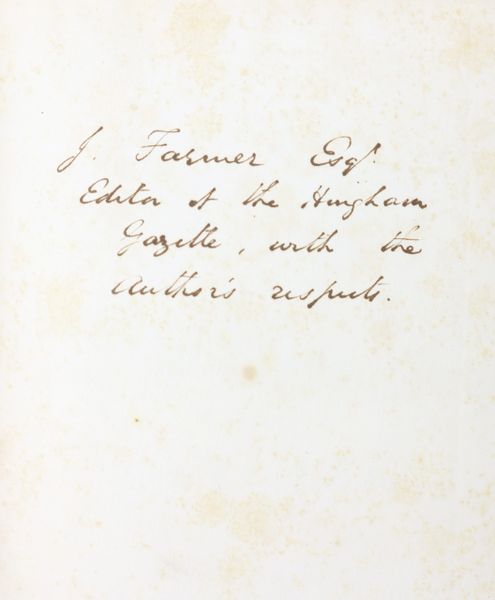 J. Farmer Esqr.
Editor of the Hingham
Gazette, with the
Author's respects.